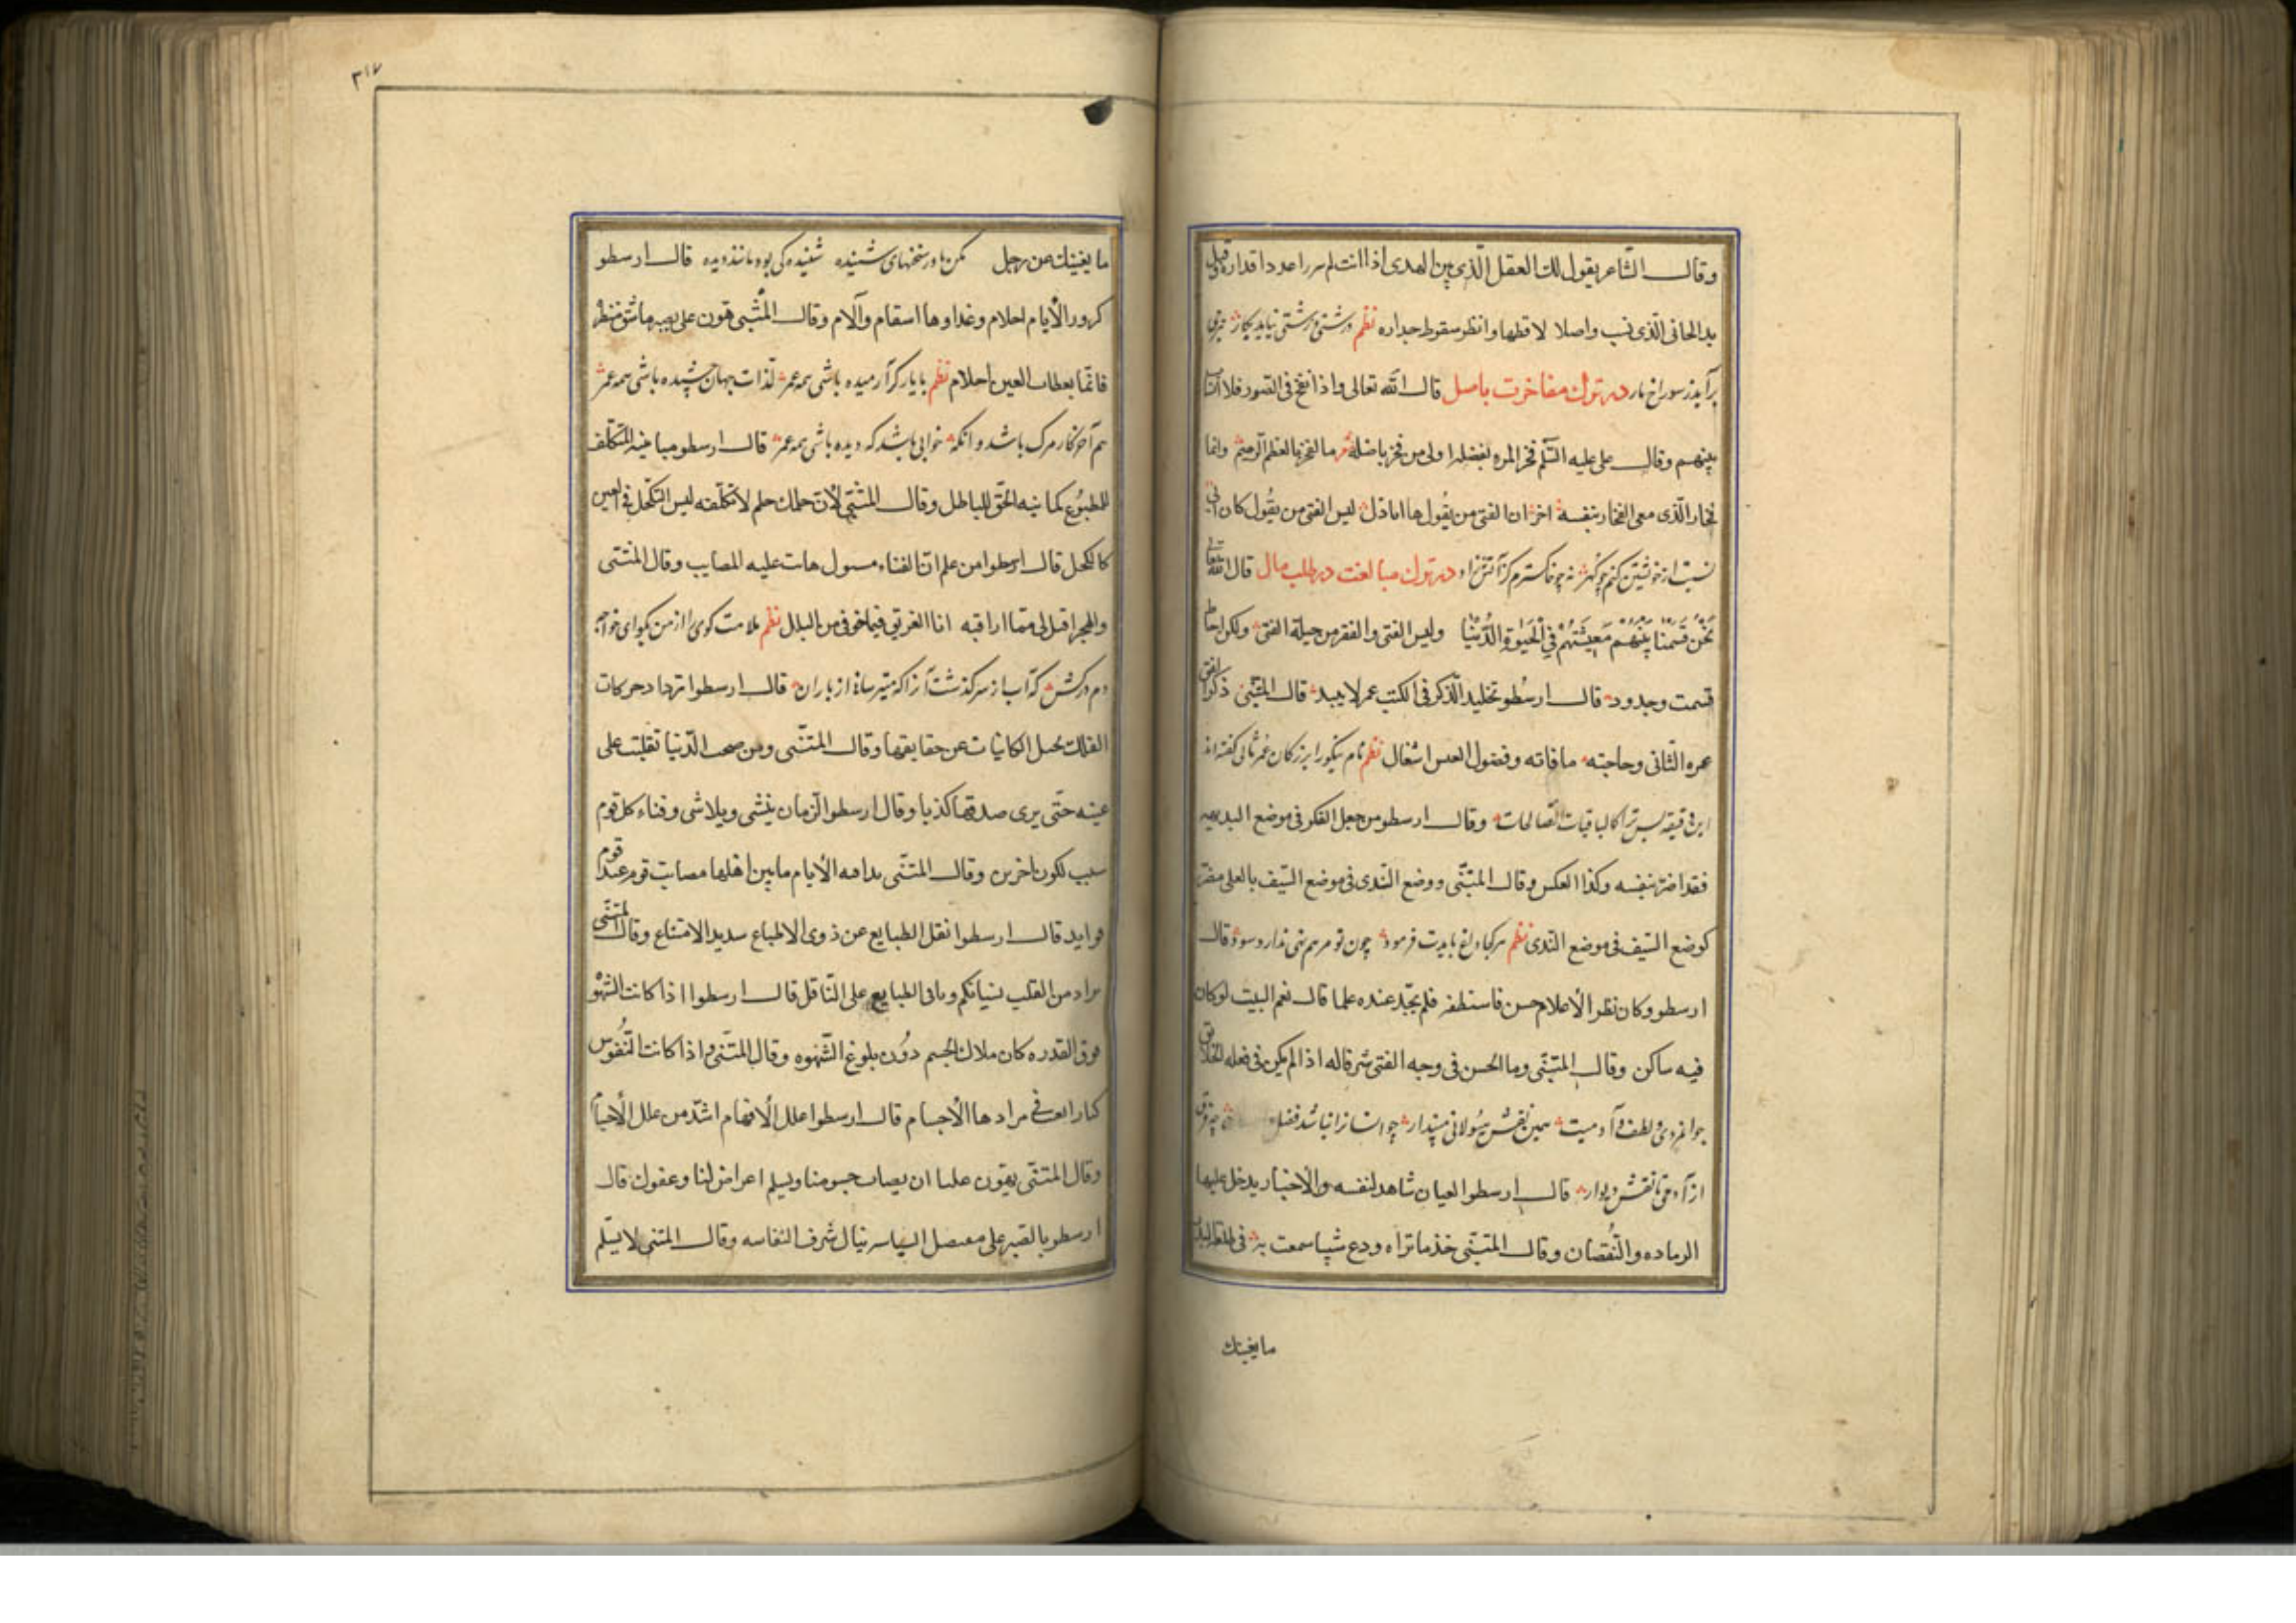 وقال الشاعر يقول لك العقل الذی بين الهدی اذا انت لم تدرا عدوا قداره قبل
يد الجانی الذی نب واصلا لا قطها وانظر سقوط جداره نظم درشتی و زشتی نیاید بکار
برآید ز سوراخ مار در ترك مفاخرت باصل قال الله تعالی واذا نفخ فی الصور فلا انساب
بينهم وقال علی عليه السلم فخر المرء بفضله اولی من فخر باصله ما الفخر بالعظم الرميم وانما
فخار الذی بنفسه اخر ان الفتی من يقول ها انا ذا ليس الفتی من يقول كان ابی
نسبت از خویشتن کنم چو گهر نه چو خاکسترم کز آتش زاد در ترك مبالغت در طلب مال قال الله تعالی
نَحْنُ قَسَمْنَا بَيْنَهُمْ مَعِيشَتَهُمْ فِي الْحَيٰوةِ الدُّنْيَا وليس الغنی والفقر من حيلة الفتی ولكن احاظ
قسمت وجدود قال ارسطو تخليد الذكر فی الكتب عمر لا يبيد قال المتنبی ذكر الفتی
عمره الثانی وحاجته ما قاته وفضول العيش اشغال نظم نام نیکو را بزرگان عمر ثانی گفته اند
این دقیقه بس ترا کالباقیات الصالحات وقال ارسطو من جعل الفكر فی موضع البديهه
فقد اضر بنفسه وكذا العكس وقال المتنبی ووضع الندی فی موضع السيف بالعلی مضر
كوضع السيف فی موضع الندی نظم هر کجا داغ بایدت فرمود چون تو مرهم نهی ندارد سود وقال
ارسطو وكان نظر الأعلام حسن فاستنطقه فلم يجد عنده علما قال نعم البيت لو كان
فيه ساكن وقال المتنبی وما الحسن فی وجه الفتی شرفا له اذا لم يكن فی فعله والخلائق
جوانمردی و لطفست آدمیت همین نقش هیولانی مپندار چو انسان را نباشد فضل چه فرق
از آدمی تا نقش دیوار قال ارسطو العيان شاهد لنفسه والأخبار يدخل عليها
الزياده والنقصان وقال المتنبی خذ ما تراه ودع شيا سمعت به فی طلعة البدر
ما يغنيك
٣١٧
ما يغنيك عن زحل مکن باور سخنهای شنیده شنیده کی بود مانند دیده قال ارسطو
كرور الأيام احلام وغداوها اسقام وآلام وقال المتنبی هون علی بصر ما شق منظره
فانما يقظات العين احلام نظم با یار گر آرمیده باشی همه عمر لذات جهان چشیده باشی همه عمر
هم آخر کار مرگ باشد وانگه خوابی باشد که دیده باشی همه عمر قال ارسطو مباينة المتكلف
للمطبوع كمباينة الحق للباطل وقال المتنبی لأن حلمك حلم لا تكلفه ليس التكحل فی العين
كالكحل قال ارسطو من علم ان الفناء مستول هانت عليه المصايب وقال المتنبی
والهجر اقتل لی مما اراقبه انا الغريق فما خوفی من البلل نظم ملامت گوی را از من بگو ای خواجه
دم درکش که آب از سر گذشت آنرا که میترسانی از باران قال ارسطو ترداد حركات
الفلك تحيل الكاينات عن حقايقها وقال المتنبی ومن صحب الدنيا تقلبت علی
عينه حتی يری صدقها كذبا وقال ارسطو الزمان ينشی ويلاشی وفناء كل قوم
سبب لكون اخرين وقال المتنبی بذا قضت الأيام ما بين اهلها مصايب قوم عند قوم
فوايد قال ارسطو نقل الطبايع عن ذوی الاطباع شديد الامتناع وقال المتنبی
يراد من القلب نسيانكم وتابی الطبايع علی الناقل قال ارسطو اذا كانت الشهوة
فوق القدره كان هلاك الجسم دون بلوغ الشهوه وقال المتنبی واذا كانت النفوس
كبارا تعبت فی مرادها الأجسام قال ارسطو علل الأفهام اشد من علل الأجسام
وقال المتنبی يهون علينا ان يصاب جسومنا ويسلم اعراض لنا وعقول قال
ارسطو بالصبر علی السياسه ينال شرف النفاسه وقال المتنبی لا يسلم